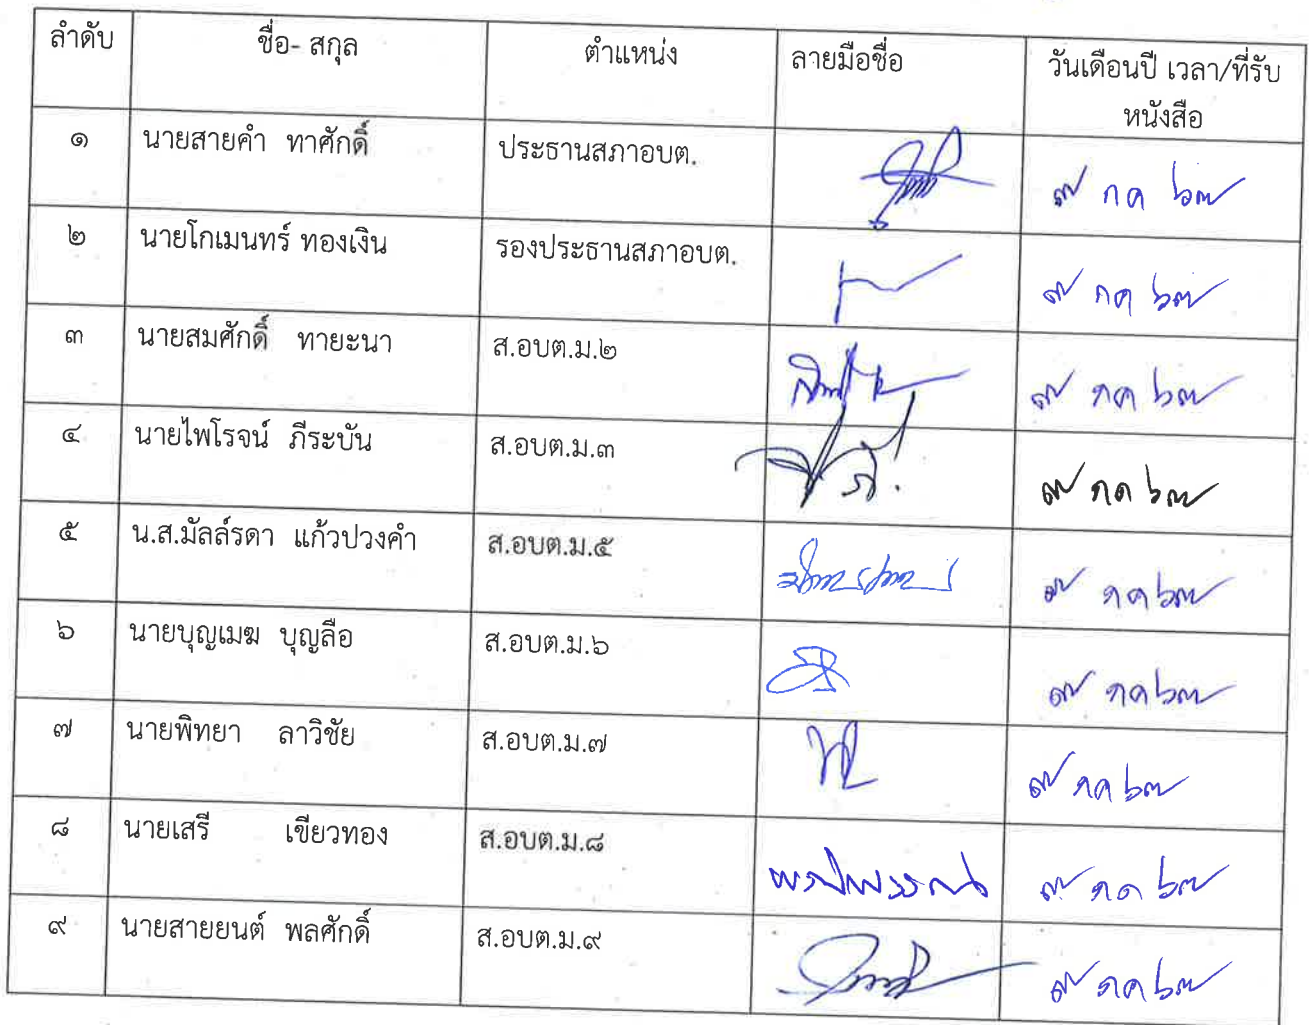 ลำดับ ชื่อ- สกุล ตำแหน่ง ลายมือชื่อ วันเดือนปี เวลา/ที่รับ
หนังสือ
๑ นายสายคำ ทาศักดิ์ ประธานสภาอบต. ๗ กค ๖๗
๒ นายโกเมนทร์ ทองเงิน รองประธานสภาอบต. ๗ กค ๖๗
๓ นายสมศักดิ์ ทายะนา ส.อบต.ม.๒ ๗ กค ๖๗
๔ นายไพโรจน์ ภีระบัน ส.อบต.ม.๓ ๗ กค ๖๗
๕ น.ส.มัลล์รดา แก้วปวงคำ ส.อบต.ม.๕ ๗ กค ๖๗
๖ นายบุญเมฆ บุญลือ ส.อบต.ม.๖ ๗ กค ๖๗
๗ นายพิทยา ลาวิชัย ส.อบต.ม.๗ ๗ กค ๖๗
๘ นายเสรี เขียวทอง ส.อบต.ม.๘ ๗ กค ๖๗
๙ นายสายยนต์ พลศักดิ์ ส.อบต.ม.๙ ๗ กค ๖๗